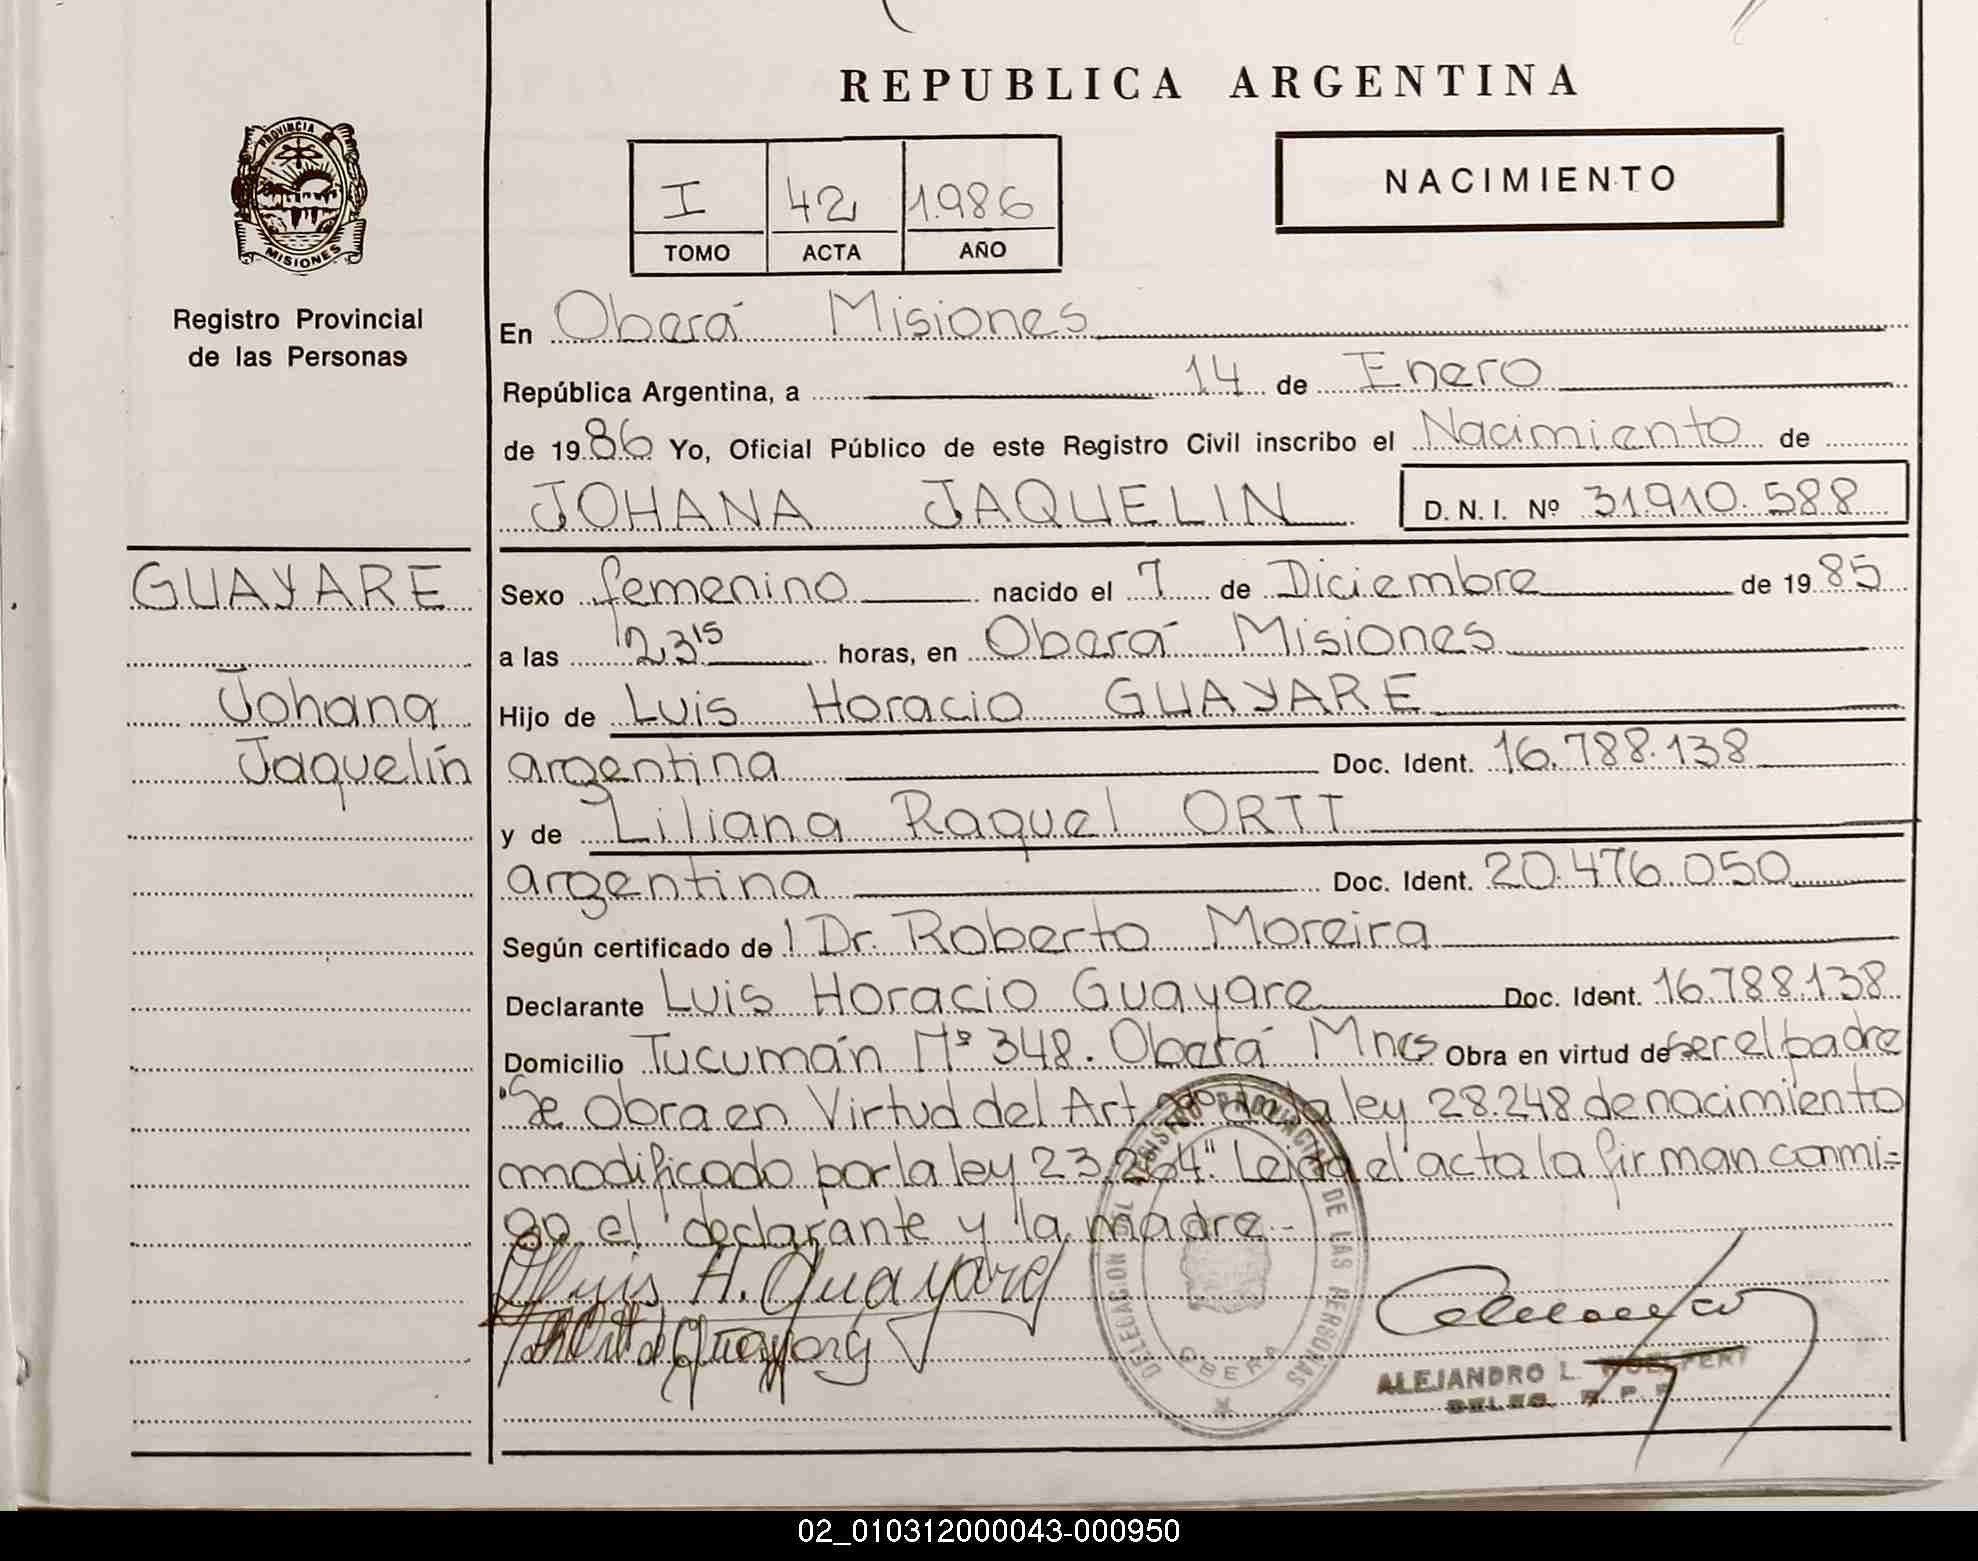 REPUBLICA ARGENTINA
PROVINCIA
MISIONES
Registro Provincial
de las Personas
I 42 1.986
TOMO ACTA AÑO
NACIMIENTO
En Oberá Misiones
República Argentina, a 14 de Enero
de 1986 Yo, Oficial Público de este Registro Civil inscribo el Nacimiento de
JOHANA JAQUELIN D.N.I. Nº 31.910.588
GUAYARE
Johana
Jaquelín
Sexo femenino nacido el 7 de Diciembre de 1985
a las 23 15 horas, en Oberá Misiones
Hijo de Luis Horacio GUAYARE
argentina Doc. Ident. 16.788.138
y de Liliana Raquel ORTT
argentina Doc. Ident. 20.476.050
Según certificado de Dr. Roberto Moreira
Declarante Luis Horacio Guayare Doc. Ident. 16.788.138
Domicilio Tucumán Nº 348. Oberá Mnes Obra en virtud de ser el padre
"Se obra en Virtud del Art de la ley 28.248 de nacimiento
modificado por la ley 23.264". Leida el acta la firman conmi=
go el declarante y la madre.-
Luis H. Guayare
de Guayare
DELEGACION DEL REGISTRO PROVINCIAL DE LAS PERSONAS
OBERA
ALEJANDRO L.
DELEG. R. P. P.
02_010312000043-000950